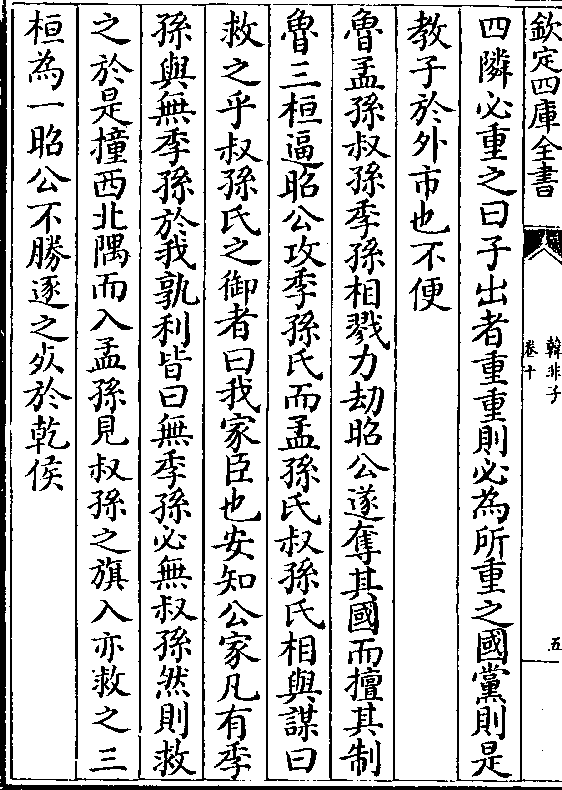 欽定四庫全書
韓非子
卷十
五
四隣必重之曰子出者重重則必為所重之國黨則是
教子於外市也不便
魯孟孫叔孫季孫相戮力劫昭公遂奪其國而擅其制
魯三桓逼昭公攻季孫氏而孟孫氏叔孫氏相與謀曰
救之乎叔孫氏之御者曰我家臣也安知公家凡有季
孫與無季孫於我孰利皆曰無季孫必無叔孫然則救
之於是撞西北隅而入孟孫見叔孫之旗入亦救之三
桓為一昭公不勝逐之死於乾侯